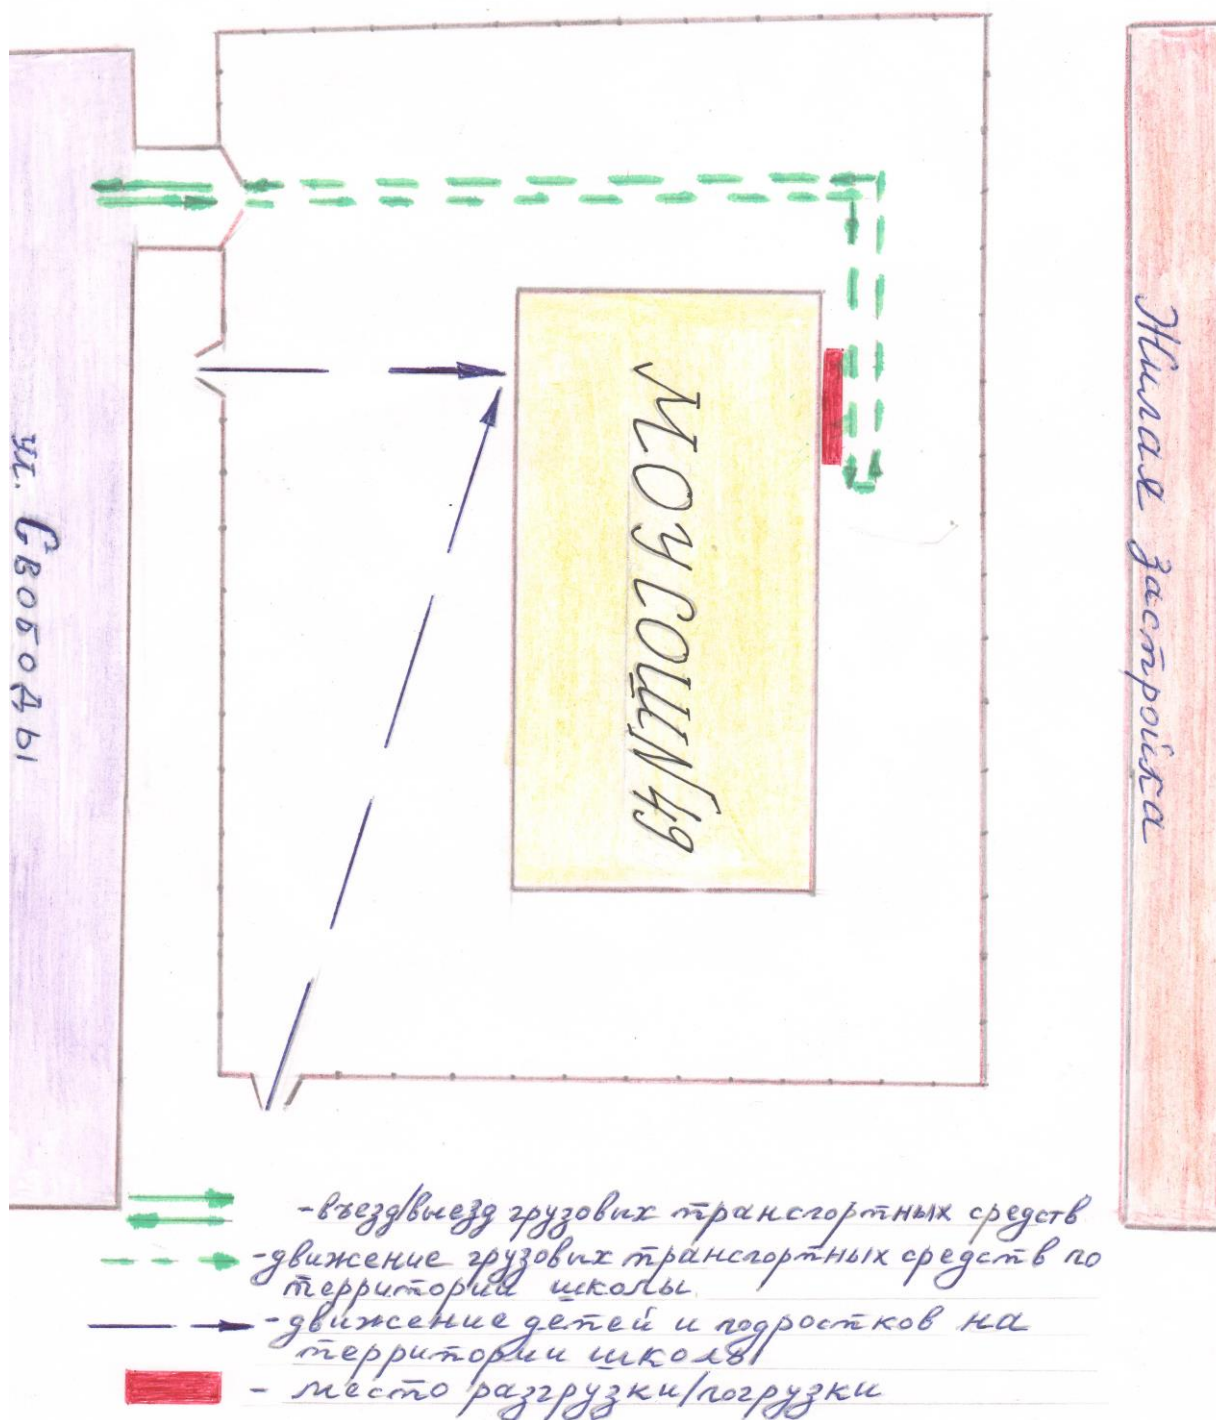 ул. Свободы
МОУ СОШ N 49
Жилая застройка
-въезд/выезд грузовых транспортных средств
-движение грузовых транспортных средств по
территории школы
-движение детей и подростков на
территории школы
- место разгрузки/погрузки